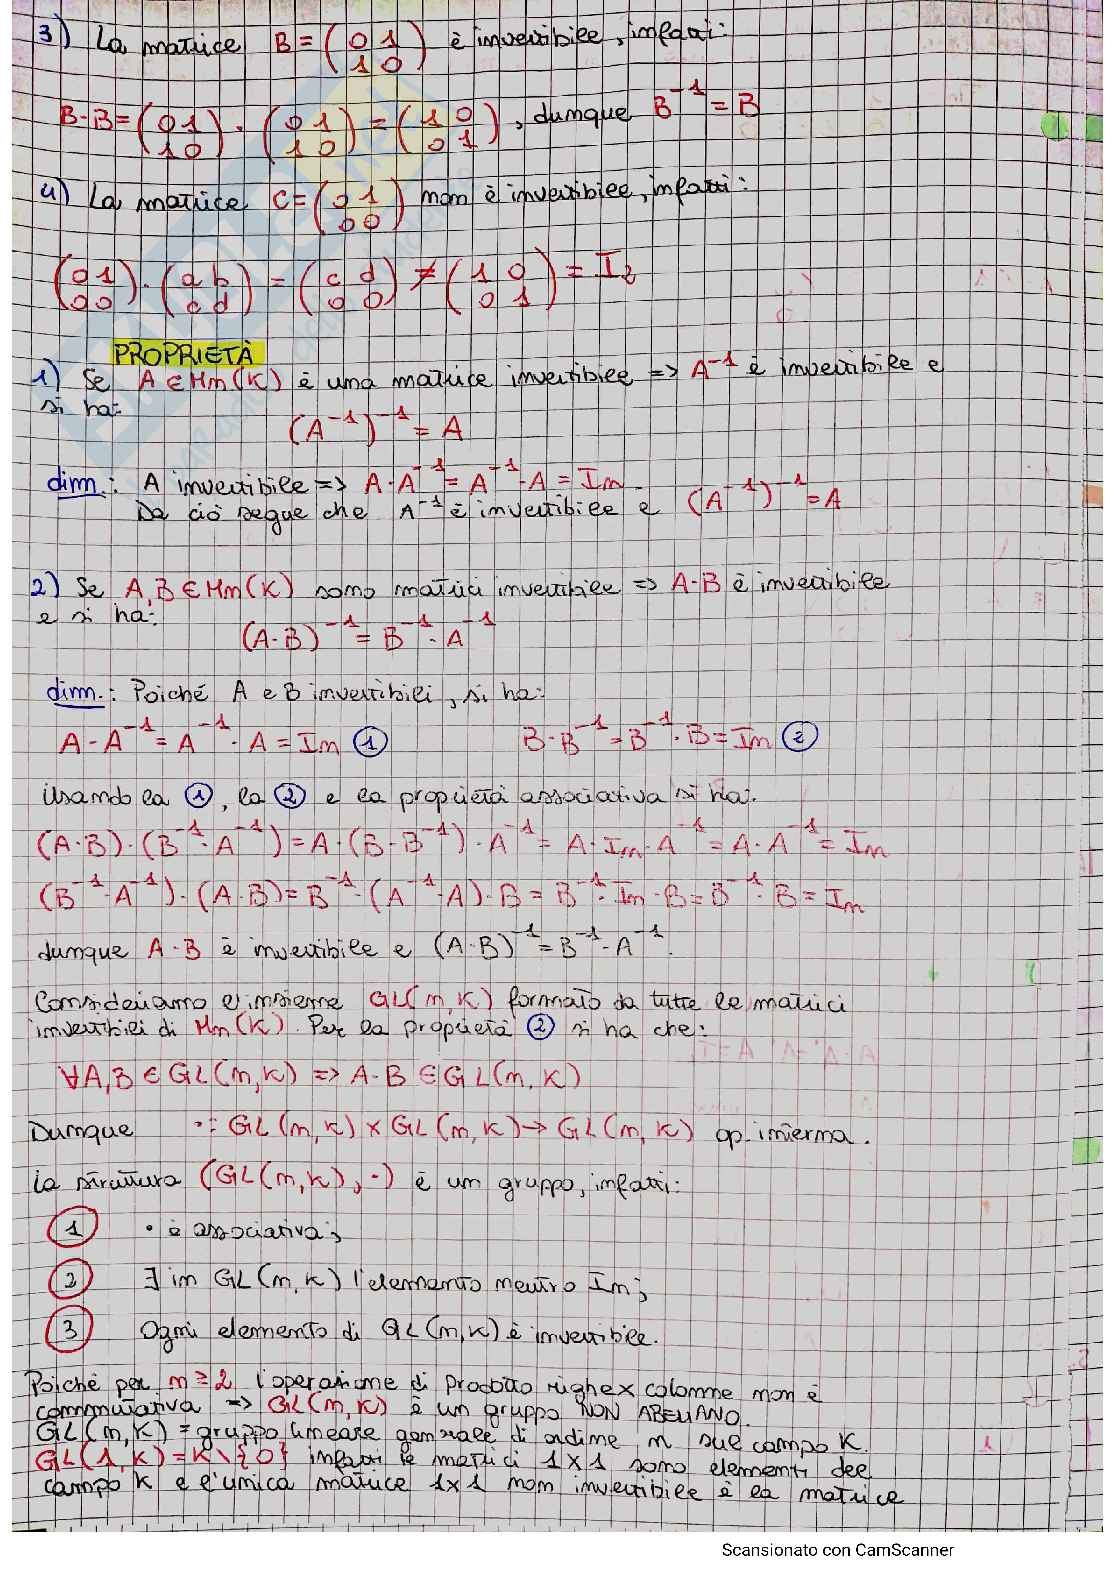 3) La matrice B = (0 1 / 1 0) è invertibile, infatti:
B·B = (0 1 / 1 0) · (0 1 / 1 0) = (1 0 / 0 1), dunque B⁻¹ = B
4) La matrice C = (0 1 / 0 0) non è invertibile, infatti:
(0 1 / 0 0) · (a b / c d) = (c d / 0 0) ≠ (1 0 / 0 1) = I₂
PROPRIETÀ
1) Se A ∈ Mn(K) è una matrice invertibile => A⁻¹ è invertibile e
si ha:
(A⁻¹)⁻¹ = A
dim.: A invertibile => A·A⁻¹ = A⁻¹·A = In.
Da ciò segue che A⁻¹ è invertibile e (A⁻¹)⁻¹ = A
2) Se A, B ∈ Mn(K) sono matrici invertibile => A·B è invertibile
e si ha:
(A·B)⁻¹ = B⁻¹·A⁻¹
dim.: Poiché A e B invertibili, si ha:
A·A⁻¹ = A⁻¹·A = In ① B·B⁻¹ = B⁻¹·B = In ②
Usando la ①, la ② e la proprietà associativa si ha:
(A·B)·(B⁻¹·A⁻¹) = A·(B·B⁻¹)·A⁻¹ = A·In·A⁻¹ = A·A⁻¹ = In
(B⁻¹·A⁻¹)·(A·B) = B⁻¹·(A⁻¹·A)·B = B⁻¹·In·B = B⁻¹·B = In
dunque A·B è invertibile e (A·B)⁻¹ = B⁻¹·A⁻¹.
Consideriamo l'insieme GL(n,K) formato da tutte le matrici
invertibili di Mn(K). Per la proprietà ② si ha che:
∀A,B ∈ GL(n,K) => A·B ∈ GL(n,K)
Dunque ·: GL(n,K) x GL(n,K) → GL(n,K) op. interna.
La struttura (GL(n,K), ·) è un gruppo, infatti:
① · è associativa;
② ∃ in GL(n,K) l'elemento neutro In;
③ Ogni elemento di GL(n,K) è invertibile.
Poiché per n≥2 l'operazione di prodotto righe x colonne non è
commutativa => GL(n,K) è un gruppo NON ABELIANO.
GL(n,K) = gruppo lineare generale di ordine n sul campo K.
GL(1,K) = K\{0} infatti le matrici 1x1 sono elementi del
campo K e l'unica matrice 1x1 non invertibile è la matrice
Scansionato con CamScanner